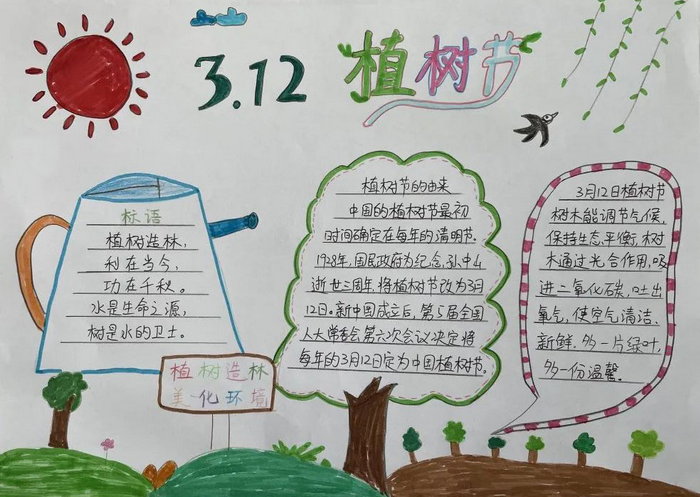 3.12 植树节
标语
植树造林,
利在当今,
功在千秋。
水是生命之源,
树是水的卫士。
植树造林
美化环境
植树节的由来
中国的植树节最初
时间确定在每年的清明节.
1928年,国民政府为纪念孙中山
逝世三周年,将植树节改为3月
12日。新中国成立后,第5届全国
人大常委会第六次会议决定将
每年的3月12日定为中国植树节。
3月12日植树节
树木能调节气候,
保持生态平衡,树
木通过光合作用,吸
进二氧化碳,吐出
氧气,使空气清洁、
新鲜.多一片绿叶,
多一份温馨.